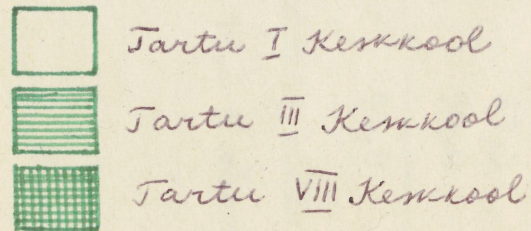 Tartu I Keskkool
Tartu III Keskkool
Tartu VIII Keskkool